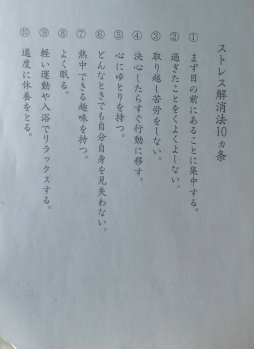 ストレス解消法10ヵ条
① まず目の前にあることに集中する。
② 過ぎたことをくよくよしない。
③ 取り越し苦労をしない。
④ 決心したらすぐ行動に移す。
⑤ 心にゆとりを持つ。
⑥ どんなときでも自分自身を見失わない。
⑦ 熱中できる趣味を持つ。
⑧ よく眠る。
⑨ 軽い運動や入浴でリラックスする。
⑩ 適度に休養をとる。